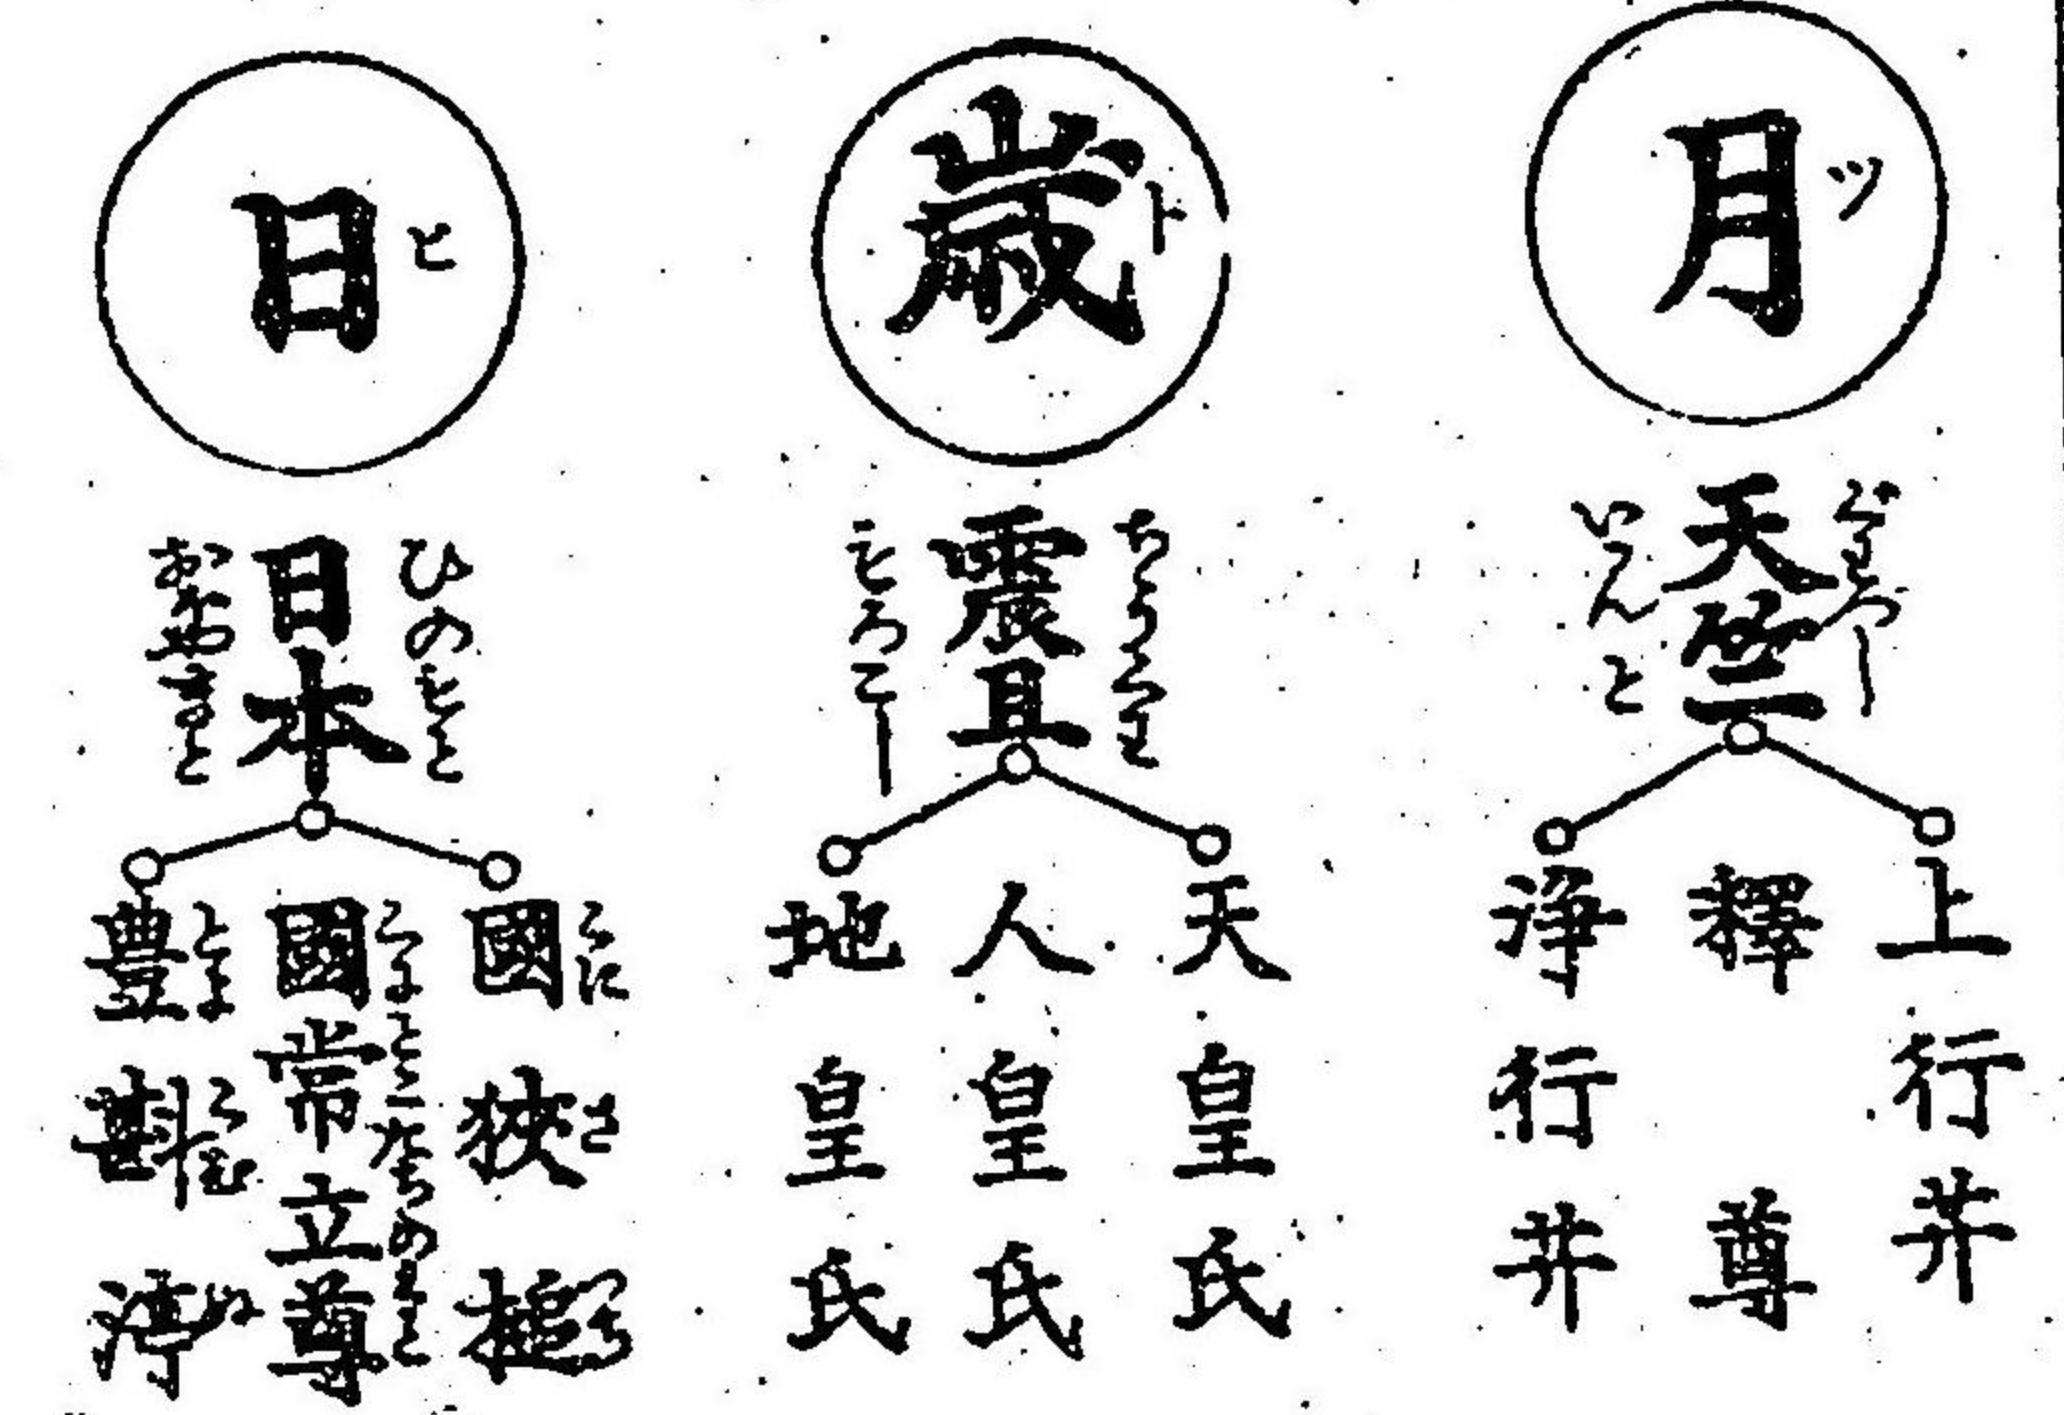 月
ツ
天竺
いんど
上行井
釋尊
浄行井
歳
ト
震旦
もろこし
天皇氏
人皇氏
地皇氏
日
ヒ
日本
ひのもと
おおやまと
國狹槌
くに さ つち
國常立尊
くにとこたちのみこと
豊斟渟
とよ くむ ぬ